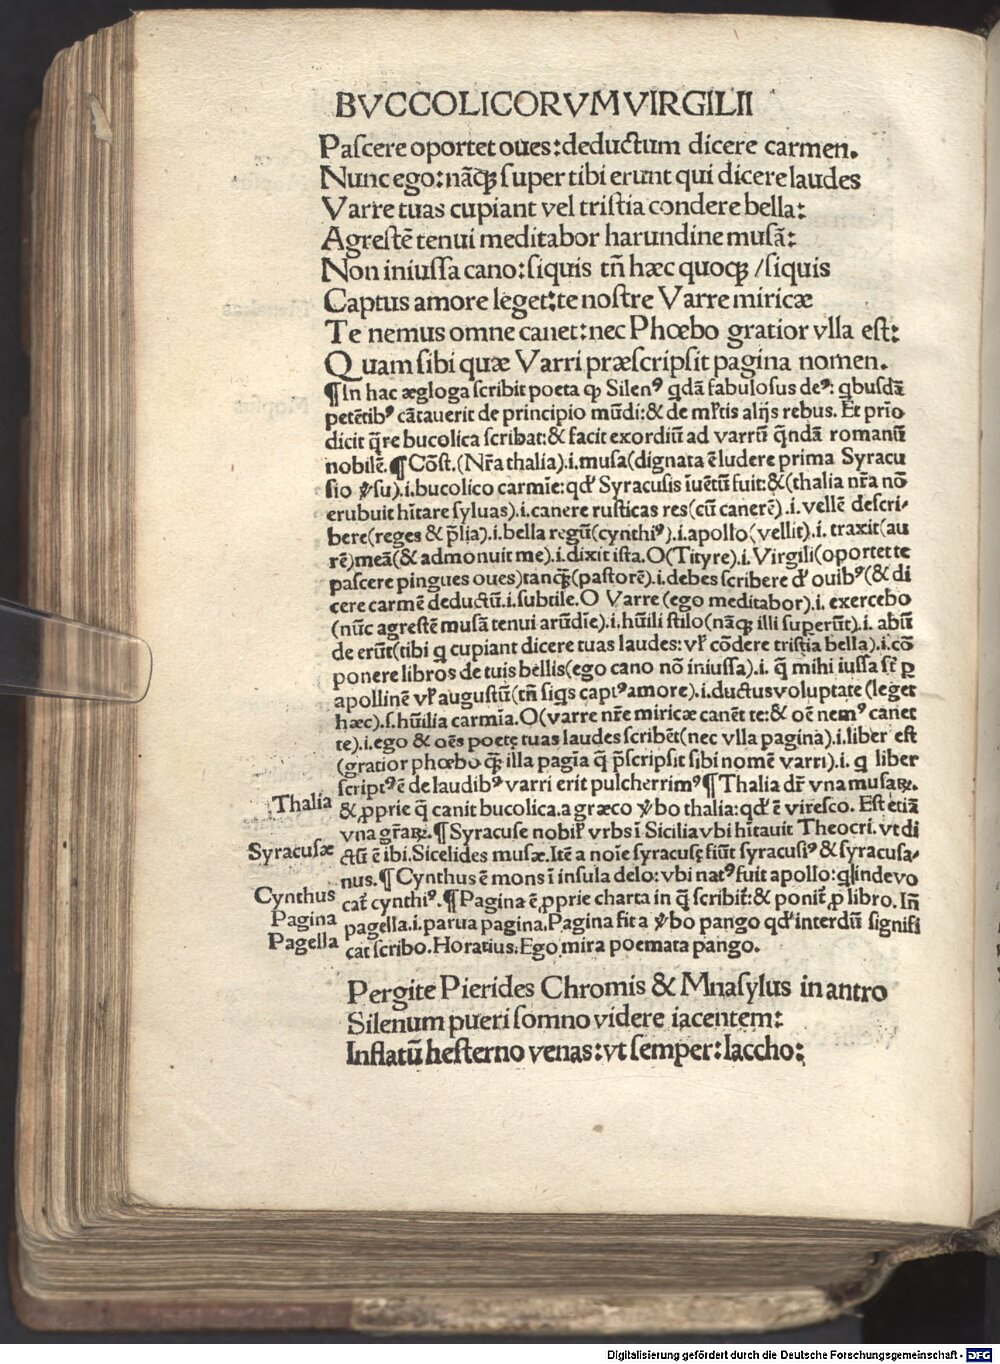 BVCCOLICORVM VIRGILII
Paſcere oportet oues: deductum dicere carmen.
Nunc ego: nāqꝫ ſuper tibi erunt qui dicere laudes
Varre tuas cupiant vel triſtia condere bella:
Agreſtē tenui meditabor harundine muſā:
Non iniuſſa cano: ſiquis tñ hæc quoqꝫ / ſiquis
Captus amore leget: te noſtre Varre miricæ
Te nemus omne canet: nec Phœbo gratior vlla eſt:
Quam ſibi quæ Varri præſcripſit pagina nomen.
¶ In hac ægloga ſcribit poeta ꝙ Silenꝰ qdā fabuloſus deꝰ: qbuſdā
petētibꝰ cātauerit de principio mūdi: & de ml̕tis alijs rebus. Et prīo
dicit q̄re bucolica ſcribat: & facit exordiū ad varrū q̄ndā romanū
nobilē. ¶ Cōſt. (Nr̄a thalia) .i. muſa (dignata ē ludere prima Syracu
ſio v̕ſu) .i. bucolico carmīe: qd̕ Syracuſis īuētū fuit: & (thalia nr̄a nō
erubuit hītare ſyluas) .i. canere ruſticas res (cū canerē) .i. vellē deſcri-
bere (reges & p̄lia) .i. bella regū (cynthiꝰ) .i. apollo (vellit) .i. traxit (au
rē) meā (& admonuit me) .i. dixit iſta. O (Tityre) .i. Virgili (oportet te
paſcere pingues oues) tanqꝫ (paſtorē) .i. debes ſcribere d̕ ouibꝰ (& di
cere carmē deductū .i. ſubtile. O Varre (ego meditabor) .i. exercebo
(nūc agreſtē muſā tenui arūdīe) .i. hūili ſtilo (nāqꝫ illi ſuperūt) .i. abū
de erūt (tibi q cupiant dicere tuas laudes: vl̕ cōdere triſtia bella) .i. cō
ponere libros de tuis bellis (ego cano nō iniuſſa) .i. q̄ mihi iuſſa ſt̄ ꝑ
apollinē vl̕ auguſtū (tñ ſiqs captꝰ amore) .i. ductus voluptate (leget
hæc) .ſ. hūilia carmīa. O (varre nr̄e miricæ canēt te: & oē nemꝰ canet
te) .i. ego & oēs poetę tuas laudes ſcribēt (nec vlla pagina) .i. liber eſt
(gratior phœbo qꝫ illa pagīa q̄ p̄ſcripſit ſibi nomē varri) .i. q liber
ſcriptꝰ ē de laudibꝰ varri erit pulcherrimꝰ ¶ Thalia dr̄ vna muſaꝝ.
Thalia
& ꝓprie q̄ canit bucolica. a græco v̕bo thalia: qd̕ ē vireſco. Eſt etiā
vna gr̄aꝝ. ¶ Syracuſe nobil̕ vrbs ī Sicilia vbi hītauit Theocri. vt di
Syracuſæ
ctū ē ibi. Sicelides muſæ. Itē a noīe ſyracuſę fiūt ſyracuſiꝰ & ſyracuſa-
nus. ¶ Cynthus ē mons ī inſula delo: vbi natꝰ fuit apollo: q inde vo
Cynthus
cat̄ cynthiꝰ. ¶ Pagina ē ꝓprie charta in q̄ ſcribit̄: & ponit̄ ꝓ libro. Iñ
Pagina
pagella .i. parua pagina. Pagina fit a v̕bo pango qd̕ interdū ſignifi
Pagella
cat ſcribo. Horatius. Ego mira poemata pango.
Pergite Pierides Chromis & Mnaſylus in antro
Silenum pueri ſomno videre iacentem:
Inflatū heſterno venas: vt ſemper: Iaccho:
Digitalisierung gefördert durch die Deutsche Forschungsgemeinschaft - DFG